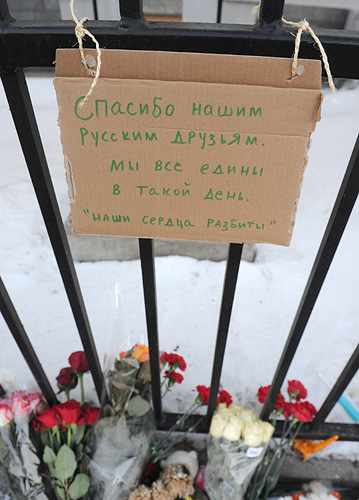 Спасибо нашим
Русским друзьям.
Мы все едины
в такой день.
"Наши сердца разбиты"